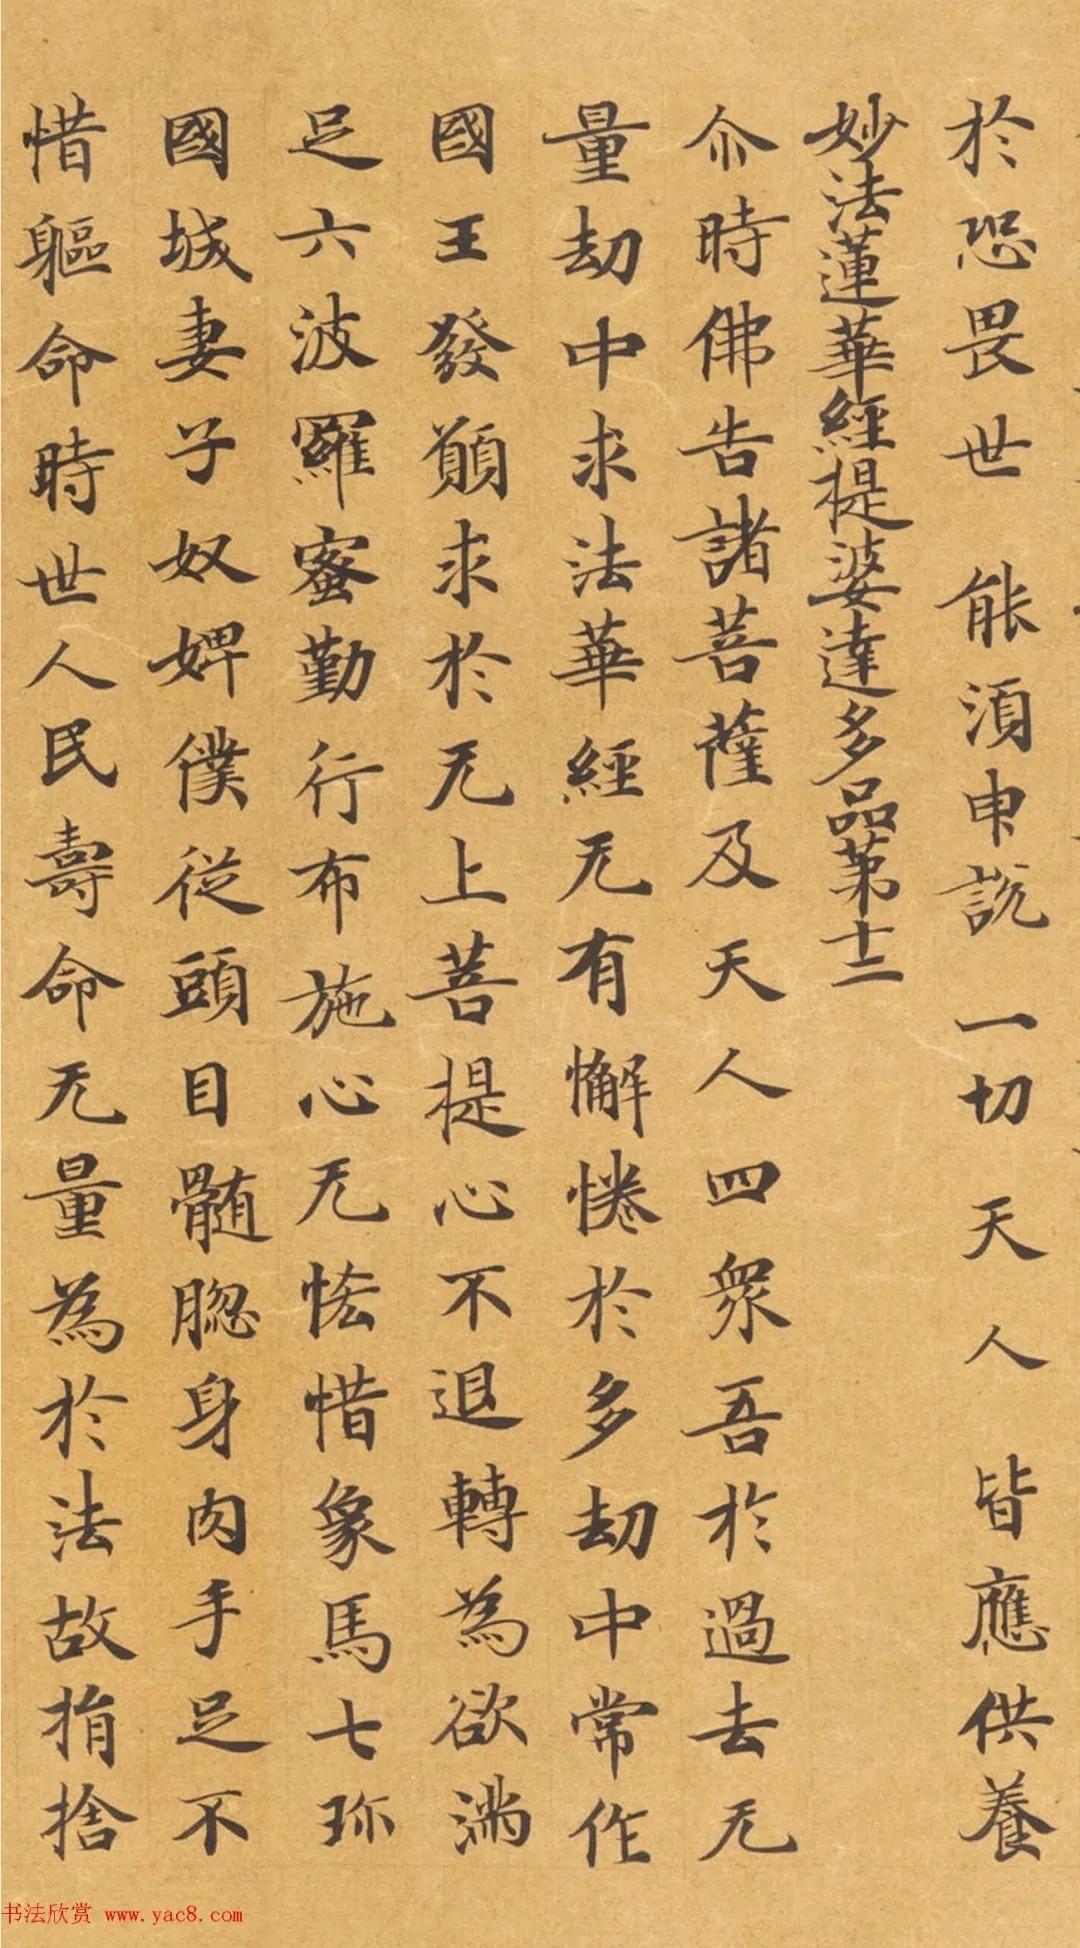 於恐畏世 能湏申説 一切 天人 皆應供養
妙法蓮華經提婆達多品第十二
尒時佛告諸菩薩及天人四衆吾於過去无
量劫中求法華經无有懈惓於多劫中常作
國王發願求於无上菩提心不退轉為欲滿
足六波羅蜜勤行布施心无恡惜象馬七珎
國城妻子奴婢僕從頭目髓𦛁身肉手足不
惜軀命時世人民壽命无量為於法故捐捨
书法欣赏 www.yac8.com